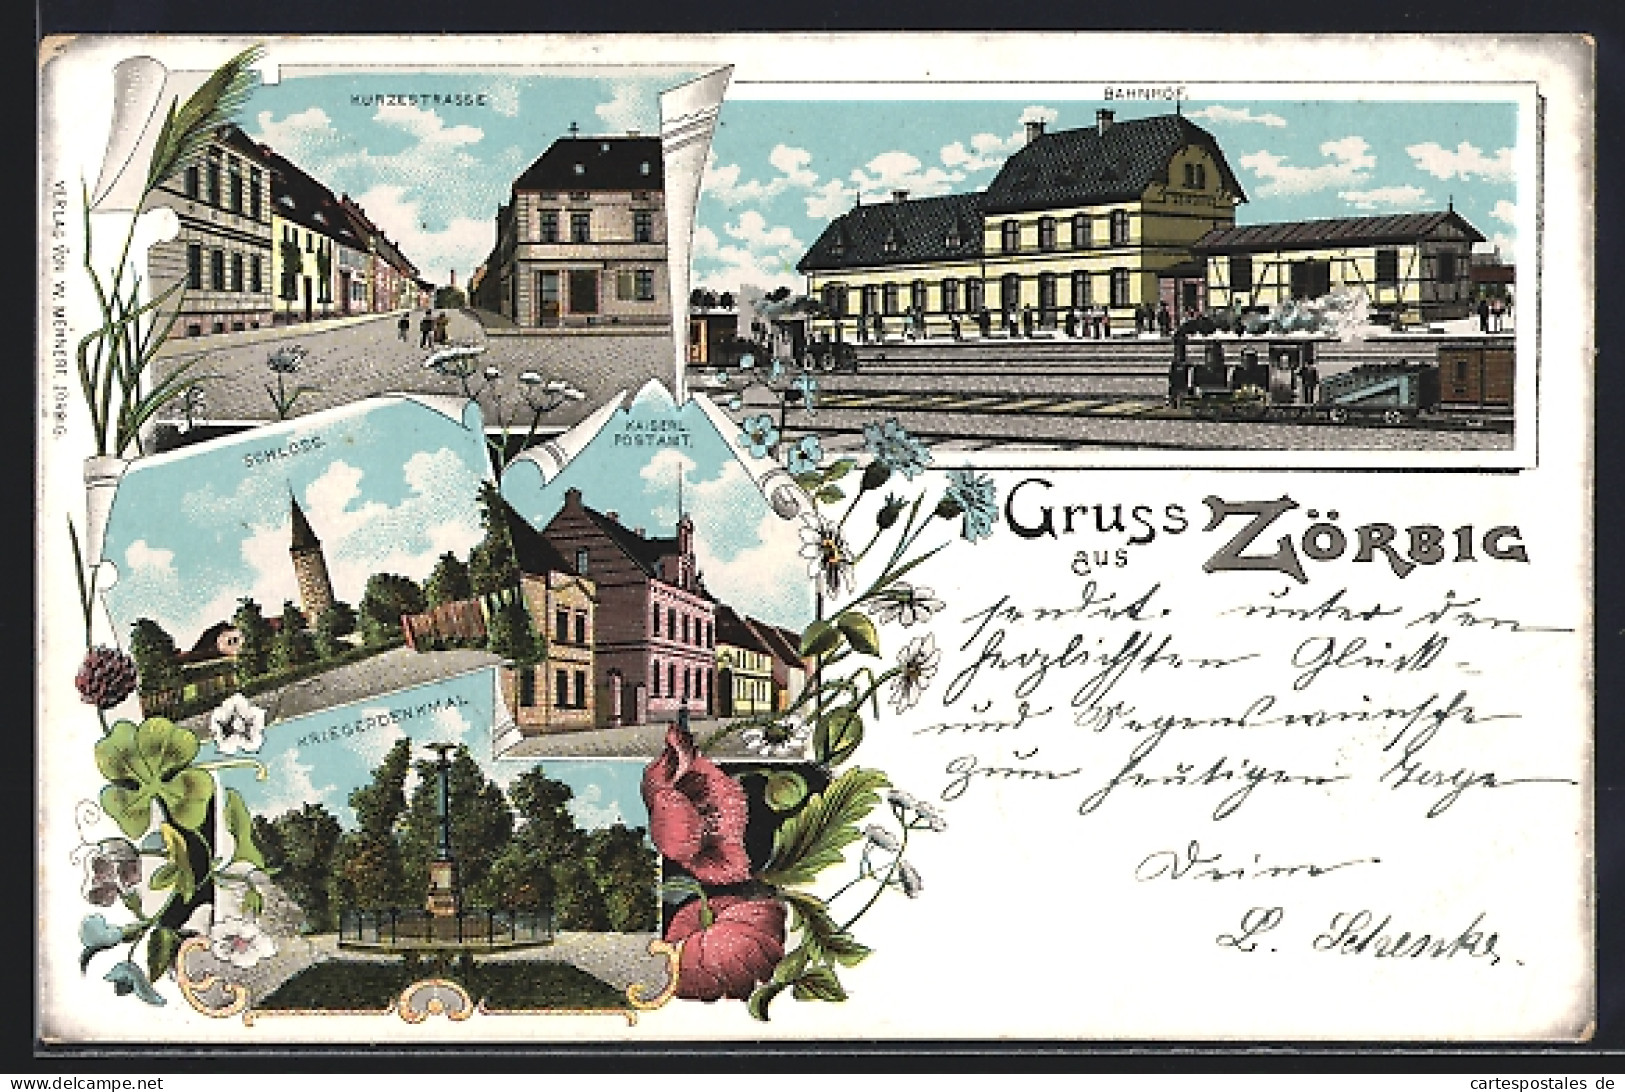 KURZESTRASSE
BAHNHOF.
SCHLOSS
KAISERL.
POSTAMT.
KRIEGERDENKMAL
VERLAG VON W. MEINERT, ZÖRBIG.
Gruss
aus ZÖRBIG
sendet unter den
herzlichsten Glück-
und Segenswünsche
zum heutigen Tage
Deine
L.
delcampe.net
cartespostales de